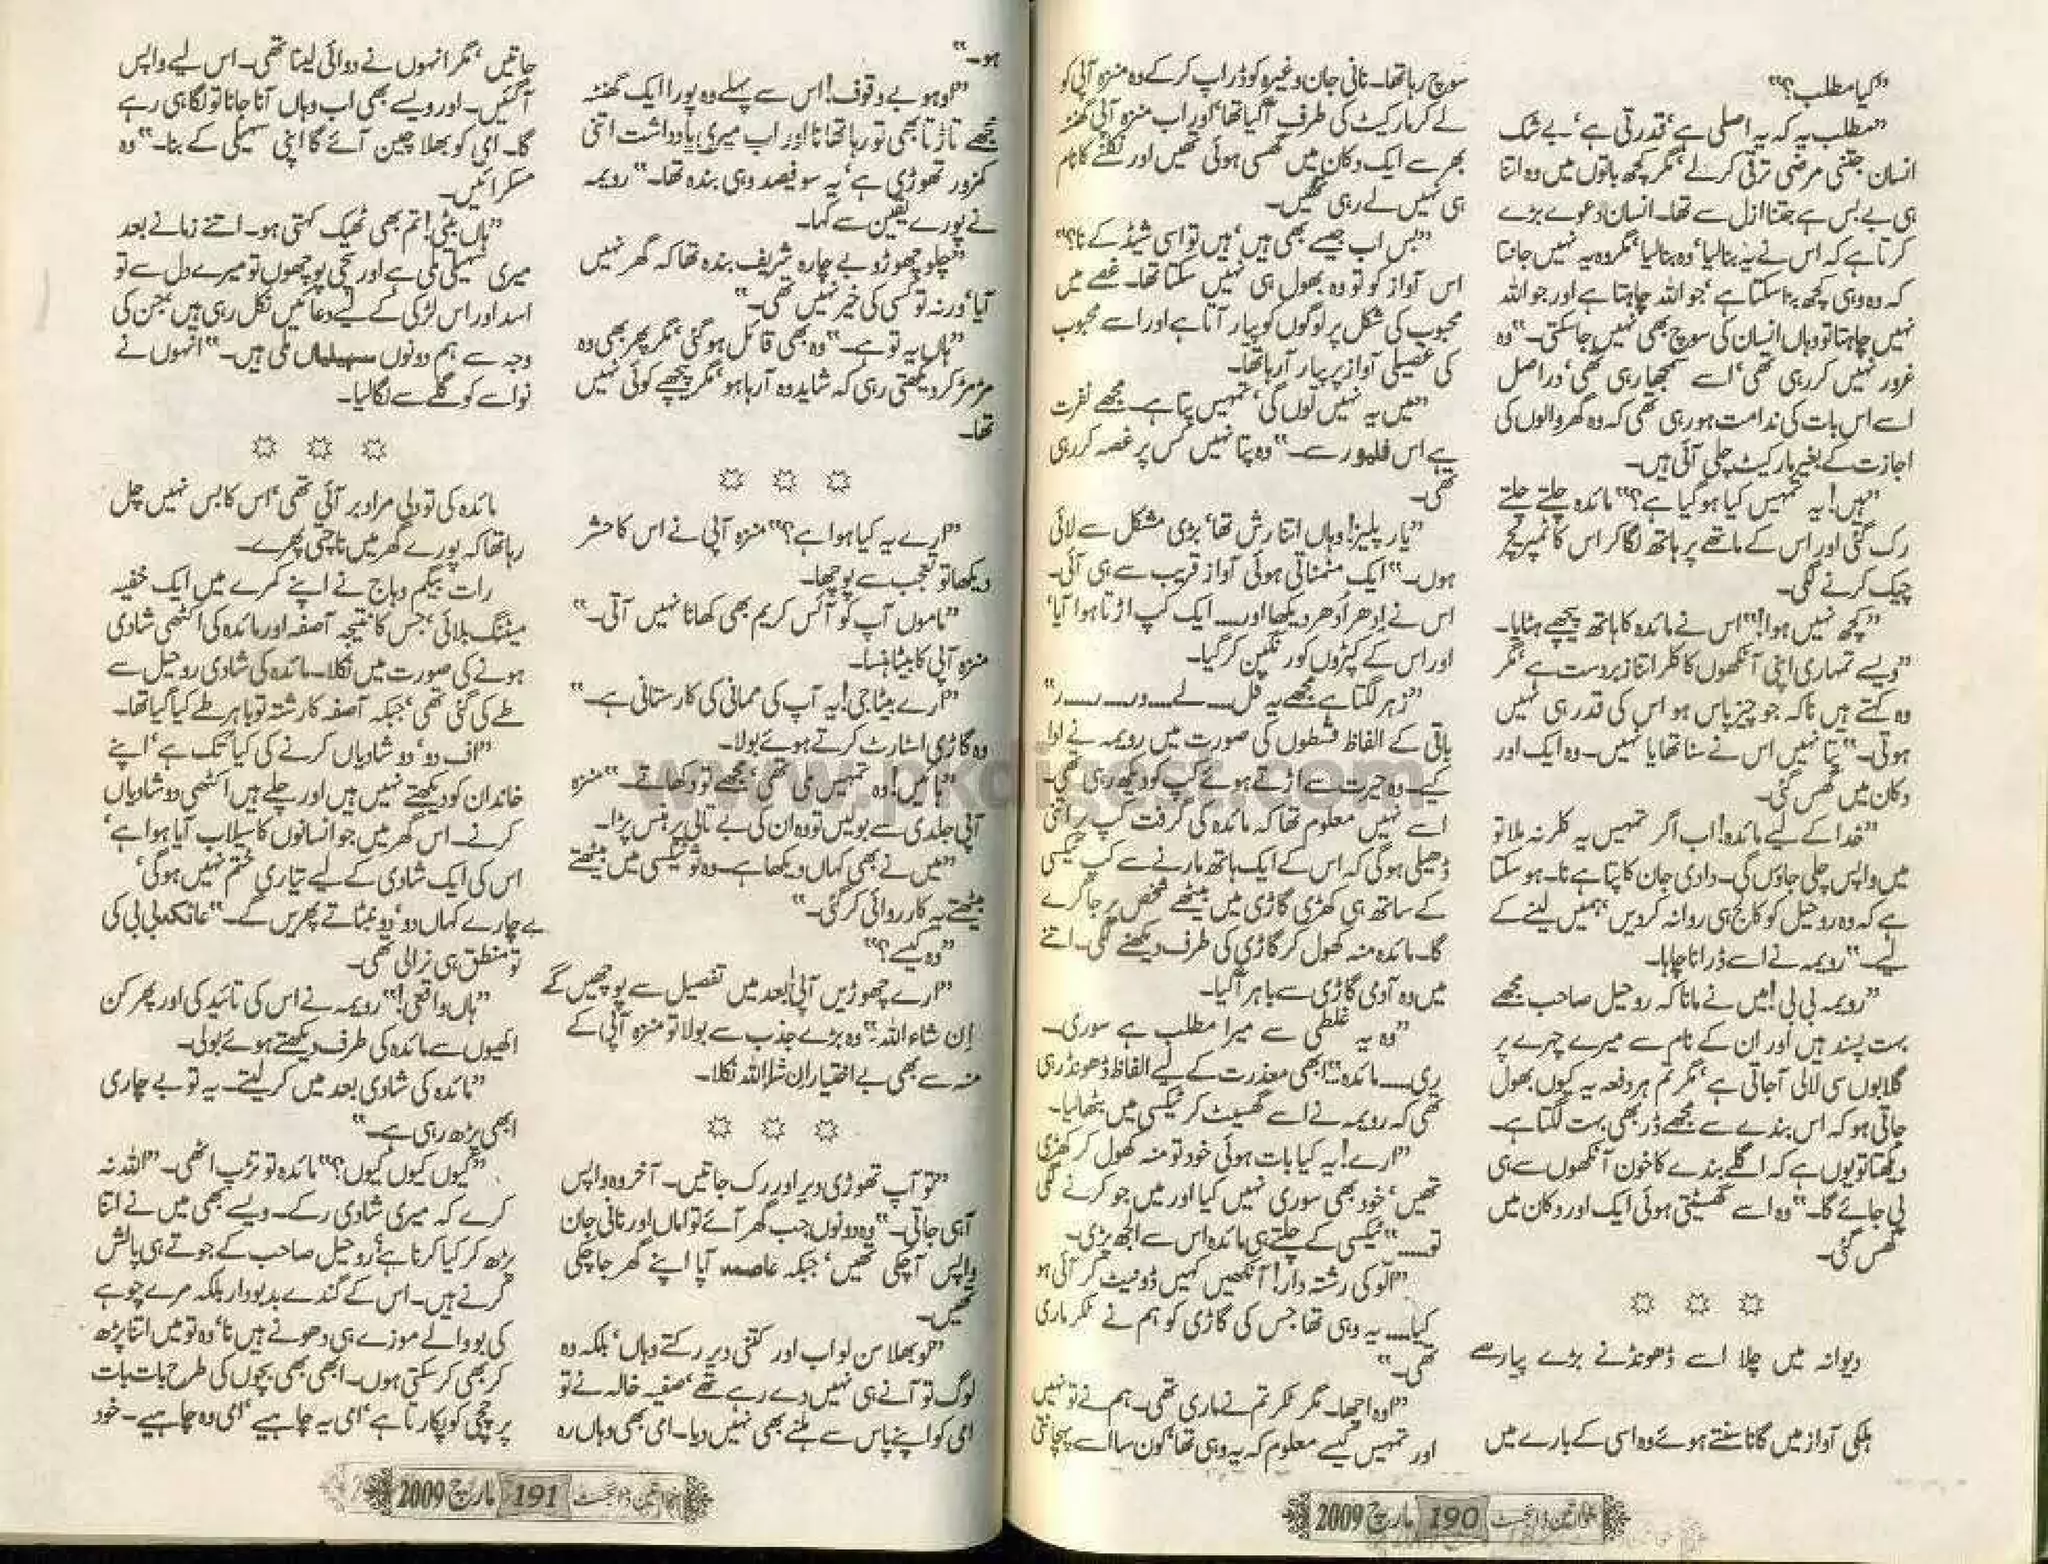 ”کیا مطلب؟“
”مطلب یہ کہ یہ اصلی ہے‘ قدرتی ہے‘ بے شک
انسان جتنی مرضی ترقی کرلے‘ مگر کچھ باتوں میں وہ اتنا
ہی بے بس ہے جتنا ازل سے تھا۔ انسان دعوے بڑے
کرتا ہے کہ اس نے یہ بنالیا‘ وہ بنالیا‘ مگر وہ یہ نہیں جانتا
کہ وہ وہی کچھ بنا سکتا ہے‘ جو اللہ چاہتا ہے اور جو اللہ
نہیں چاہتا تو وہاں انسان کی سوچ بھی نہیں جاسکتی۔“ وہ
غرور نہیں کررہی تھی‘ اسے سمجھا رہی تھی‘ دراصل
اسے اس بات کی ندامت ہورہی تھی کہ وہ گھر والوں کی
اجازت کے بغیر مارکیٹ چلی آئی ہیں۔
”ہیں! یہ تمہیں کیا ہوگیا ہے؟“ مائدہ چلتے چلتے
رک گئی اور اس کے ماتھے پر ہاتھ لگا کر اس کا ٹمپریچر
چیک کرنے لگی۔
”کچھ نہیں ہوا!“ اس نے مائدہ کا ہاتھ پیچھے ہٹایا۔
”ویسے تمہاری اپنی آنکھوں کا کلر اتنا زبردست ہے‘ مگر
وہ کہتے ہیں ناکہ جو چیز پاس ہو اس کی قدر ہی نہیں
ہوتی۔“ پتا نہیں اس نے سنا تھا یا نہیں۔ وہ ایک اور
دکان میں گھس گئی۔
”خدا کے لیے مائدہ! اب اگر تمہیں یہ کلر نہ ملا تو
میں واپس چلی جاؤں گی۔ دادی جان کا پتا ہے نا۔ ہوسکتا
ہے کہ وہ روحیل کو کالج ہی روانہ کردیں‘ ہمیں لینے کے
لیے۔“ رویمہ نے اسے ڈرانا چاہا۔
”رویمہ بی بی! میں نے مانا کہ روحیل صاحب مجھے
بہت پسند ہیں اور ان کے نام سے میرے چہرے پر
گلابوں سی لالی آجاتی ہے‘ مگر تم ہر دفعہ یہ کیوں بھول
جاتی ہو کہ اس بندے سے مجھے ڈر بھی بہت لگتا ہے۔
دیکھتا تو یوں ہے کہ اگلے بندے کا خون آنکھوں سے ہی
پی جائے گا۔“ وہ اسے گھسیٹتی ہوئی ایک اور دکان میں
گھس گئی۔
دیوانہ میں چلا اسے ڈھونڈنے بڑے پیار سے
ہلکی آواز میں گانا سنتے ہوئے وہ اسی کے بارے میں
سوچ رہا تھا۔ نانی جان وغیرہ کو ڈراپ کرکے وہ منزہ آپی کو
لے کر مارکیٹ کی طرف آگیا تھا‘ اور اب منزہ آپی گھنٹہ
بھر سے ایک دکان میں گھسی ہوئی تھیں اور نکلنے کا نام
ہی نہیں لے رہی تھیں۔
”بس اب جیسے بھی ہیں‘ ہیں تو اسی شیڈ کے نا؟“
اس آواز کو تو وہ بھول ہی نہیں سکتا تھا۔ غصے میں
محبوب کی شکل پر لوگوں کو پیار آتا ہے اور اسے محبوب
کی غصیلی آواز پر پیار آرہا تھا۔
”میں یہ نہیں لوں گی‘ تمہیں پتا ہے۔ مجھے نفرت
ہے اس فلیور سے۔“ وہ پتا نہیں کس پر غصہ کررہی
تھی۔
”یار پلیز! وہاں اتنا رش تھا‘ بڑی مشکل سے لائی
ہوں۔“ ایک منمناتی ہوئی آواز قریب سے ہی آئی۔
اس نے اِدھر اُدھر دیکھا اور.... ایک کپ اڑتا ہوا آیا‘
اور اس کے کپڑوں کو رنگین کرگیا۔
”زہر لگتا ہے مجھے یہ فل.... لے.... ور.... ر.... ر“
باقی کے الفاظ قسطوں کی صورت میں رویمہ نے ادا
کیے۔ وہ حیرت سے اڑتے ہوئے کپ کو دیکھ رہی تھی۔
اسے نہیں معلوم تھا کہ مائدہ کی گرفت کپ پر اتنی
ڈھیلی ہوگی کہ اس کے ایک ہاتھ مارنے سے کپ ٹیکسی
کے ساتھ ہی کھڑی گاڑی میں بیٹھے شخص پر جاگرے
گا۔ مائدہ منہ کھول کر گاڑی کی طرف دیکھنے لگی۔ اتنے
میں وہ آدمی گاڑی سے باہر آگیا۔
”وہ یہ غلطی سے میرا مطلب ہے سوری۔
ری.... مائدہ“ ابھی معذرت کے لیے الفاظ ڈھونڈ رہی
تھی کہ رویمہ نے اسے گھسیٹ کر ٹیکسی میں بٹھالیا۔
”ارے! یہ کیا بات ہوئی خود تو منہ کھول کر کھڑی
تھیں‘ خود بھی سوری نہیں کیا اور میں جو کرنے لگی
تو....“ ٹیکسی کے چلتے ہی مائدہ اس سے الجھ پڑی۔
”الّو کی رشتہ دار! آنکھیں کہیں ڈونیٹ کر آئی ہو
کیا.... یہ وہی تھا جس کی گاڑی کو ہم نے ٹکر ماری
تھی۔“
”اوہ اچھا۔ مگر ٹکر تم نے ماری تھی۔ ہم نے تو نہیں
اور تمہیں کیسے معلوم کہ یہ وہی تھا‘ کون سا اسے پہچانتی
خواتین ڈائجسٹ 190 مارچ 2009
ہو۔“
”اوہو بے وقوف! اس سے پہلے وہ پورا ایک گھنٹہ
مجھے تاڑتا بھی تو رہا تھا نا اور اب میری یادداشت اتنی
کمزور تھوڑی ہے‘ یہ سو فیصد وہی بندہ تھا۔“ رویمہ
نے پورے یقین سے کہا۔
”چلو چھوڑو بے چارہ شریف بندہ تھا کہ گھر نہیں
آیا‘ ورنہ تو کسی کی خیر نہیں تھی۔“
”ہاں یہ تو ہے۔“ وہ بھی قائل ہوگئی‘ مگر پھر بھی وہ
مڑ مڑ کر دیکھتی رہی کہ شاید وہ آرہا ہو‘ مگر پیچھے کوئی نہیں
تھا۔
”ارے یہ کیا ہوا ہے؟“ منزہ آپی نے اس کا حشر
دیکھا تو تعجب سے پوچھا۔
”ماموں آپ کو آئس کریم بھی کھانا نہیں آتی۔“
منزہ آپی کا بیٹا ہنسا۔
”ارے بیٹا جی! یہ آپ کی ممانی کی کارستانی ہے۔“
وہ گاڑی اسٹارٹ کرتے ہوئے بولا۔
”ہائیں! وہ تمہیں ملی تھی‘ مجھے تو دکھاتے۔“ منزہ
آپی جلدی سے بولیں تو وہ ان کی بے تابی پر ہنس پڑا۔
”میں نے بھی کہاں دیکھا ہے۔ وہ تو ٹیکسی میں بیٹھتے
بیٹھتے یہ کارروائی کرگئی۔“
”وہ کیسے؟“
”ارے چھوڑیں آپی! بعد میں تفصیل سے پوچھیں گے
اِن شاء اللہ۔“ وہ بڑے جذب سے بولا تو منزہ آپی کے
منہ سے بھی بے اختیار ان شاء اللہ نکلا۔
”تو آپ تھوڑی دیر اور رک جاتیں۔ آخر وہ واپس
آہی جاتی۔“ وہ دونوں جب گھر آئے تو اماں اور نانی جان
واپس آچکی تھیں‘ جبکہ عاصمہ آپا اپنے گھر جاچکی
تھیں۔
”لو بھلا سن لو اب اور کتنی دیر رکتے وہاں‘ بلکہ وہ
لوگ تو آنے ہی نہیں دے رہے تھے‘ صفیہ خالہ نے تو
امی کو اپنے پاس سے ہلنے بھی نہیں دیا۔ امی بھی وہاں رہ
جاتیں‘ مگر انہوں نے دوائی لینا تھی۔ اس لیے واپس
آگئیں۔ اور ویسے بھی اب وہاں آنا جانا تو لگا ہی رہے
گا۔ امی کو بھلا چین آئے گا اپنی سہیلی کے بنا۔“ وہ
مسکرائیں۔
”ہاں بیٹی! تم بھی ٹھیک کہتی ہو۔ اتنے زمانے بعد
میری سہیلی ملی ہے اور سچی پوچھوں تو میرے دل سے تو
اسد اور اس لڑکی کے لیے دعائیں نکل رہی ہیں‘ جن کی
وجہ سے ہم دونوں سہیلیاں ملی ہیں۔“ انہوں نے
نواسے کو گلے سے لگالیا۔
مائدہ کی تو دلی مراد بر آئی تھی‘ اس کا بس نہیں چل
رہا تھا کہ پورے گھر میں ناچتی پھرے۔
رات بیگم وہاج نے اپنے کمرے میں ایک خفیہ
میٹنگ بلائی‘ جس کا نتیجہ آصفہ اور مائدہ کی اکٹھی شادی
ہونے کی صورت میں نکلا۔ مائدہ کی شادی روحیل سے
طے کی گئی تھی‘ جبکہ آصفہ کا رشتہ تو باہر طے کیا گیا تھا۔
”اف دو‘ دو شادیاں کرنے کی کیا تک ہے‘ اپنے
خاندان کو دیکھتے نہیں ہیں اور چلے ہیں اکٹھی دو شادیاں
کرنے۔ اس گھر میں جو انسانوں کا سیلاب آیا ہوا ہے‘
اس کی ایک شادی کے لیے تیاری ختم نہیں ہوگی‘
بے چارے کہاں دو‘ دو نمٹاتے پھریں گے۔“ عاتکہ بی بی کی
تو منطق ہی نرالی تھی۔
”ہاں واقعی!“ رویمہ نے اس کی تائید کی اور پھر کن
اکھیوں سے مائدہ کی طرف دیکھتے ہوئے بولی۔
”مائدہ کی شادی بعد میں کرلیتے۔ یہ تو بے چاری
ابھی پڑھ رہی ہے۔“
”کیوں کیوں کیوں؟“ مائدہ تو تڑپ اٹھی۔ ”اللہ نہ
کرے کہ میری شادی رکے۔ ویسے بھی میں نے اتنا
پڑھ کر کیا کرنا ہے‘ روحیل صاحب کے جوتے ہی پالش
کرنے ہیں۔ اس کے گندے بدبودار بلکہ مرے چوہے
کی بو والے موزے ہی دھونے ہیں نا‘ وہ تو میں اتنا پڑھ
کر بھی کرسکتی ہوں۔ ابھی بھی بچوں کی طرح بات بات
پر چچی کو پکارتا ہے‘ امی یہ چاہیے‘ امی وہ چاہیے۔ خود
خواتین ڈائجسٹ 191 مارچ 2009